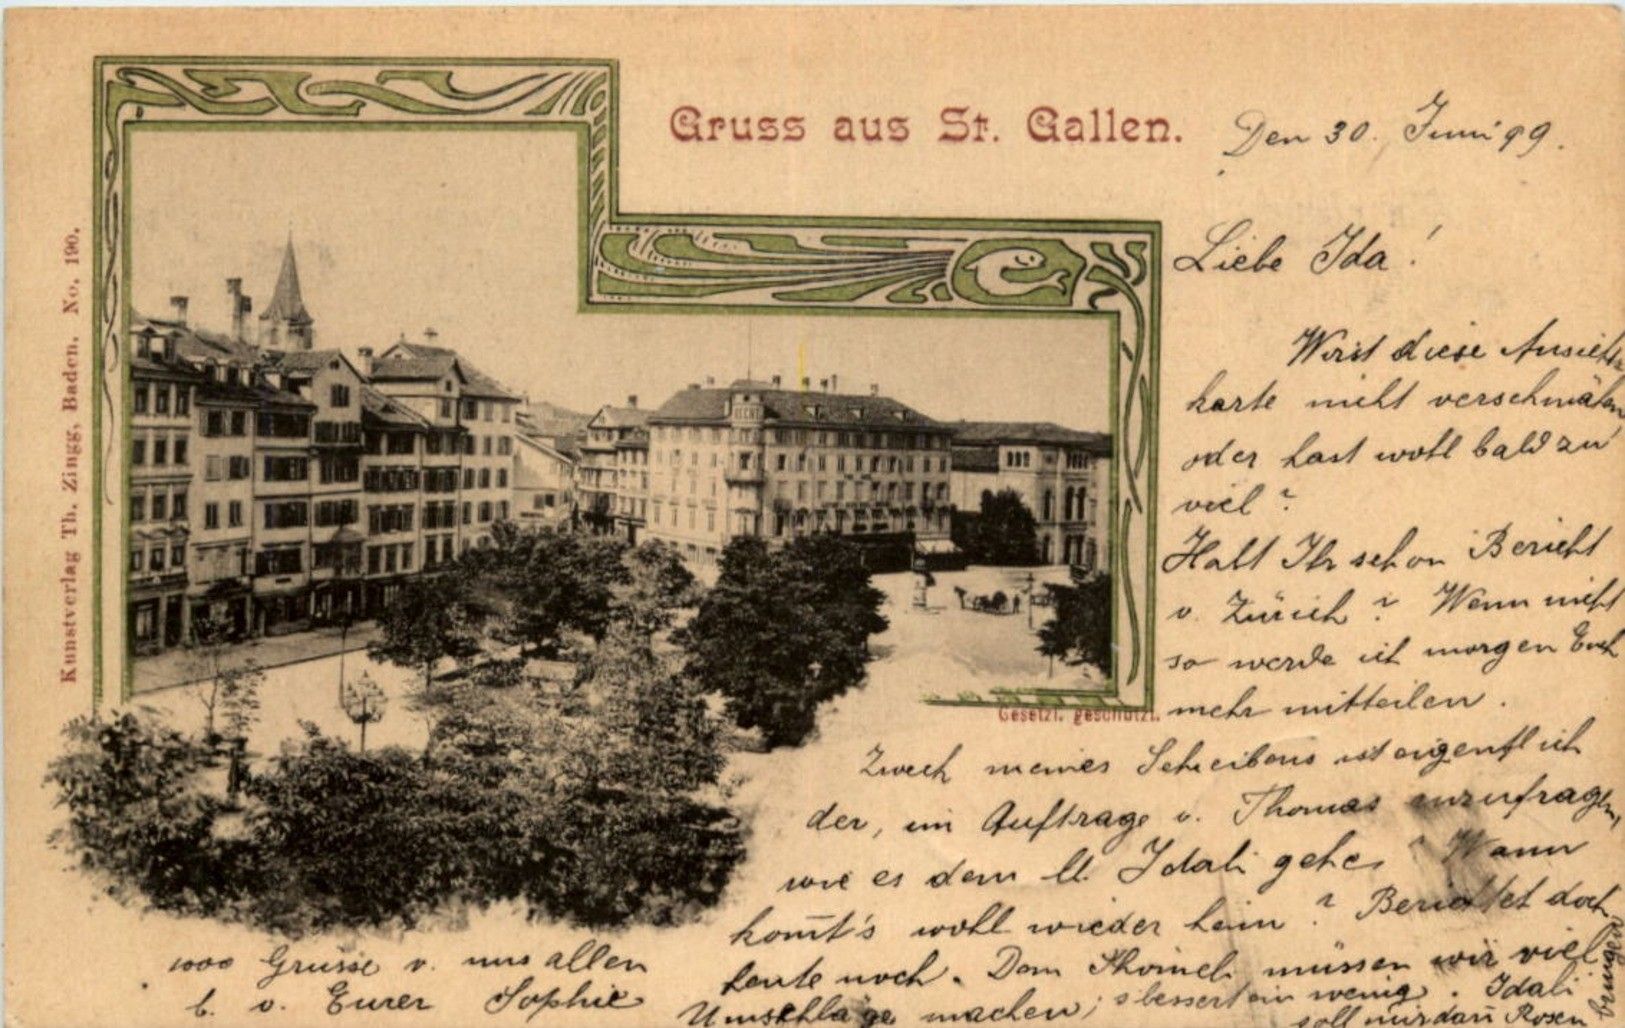 Gruss aus St. Gallen.
Den 30. Juni 99.
Liebe Ida!
Wirst diese Ansichts-
karte nicht verschmähen
oder hast wohl bald zu
viel?
Habt Ihr schon Bericht
v. Zürich? Wenn nicht
so werde ich morgen Euch
mehr mitteilen.
Zweck meines Schreibens ist eigentlich
der, im Auftrage v. Thomas anzufragen,
wie es dem lb. Idali gehe. Wann
kom̄t's wohl wieder heim? Berichtet doch
heute noch. Dem müssen wir viel
Umschläge machen; s'bessert ein wenig. Idali
soll nur dan̄ Rosen
bringen
1000 Grüsse v. uns allen
b. v. Eurer Sophie
Gesetzl. geschützt.
Kunstverlag Th. Zingg, Baden. No. 190.
HECHT